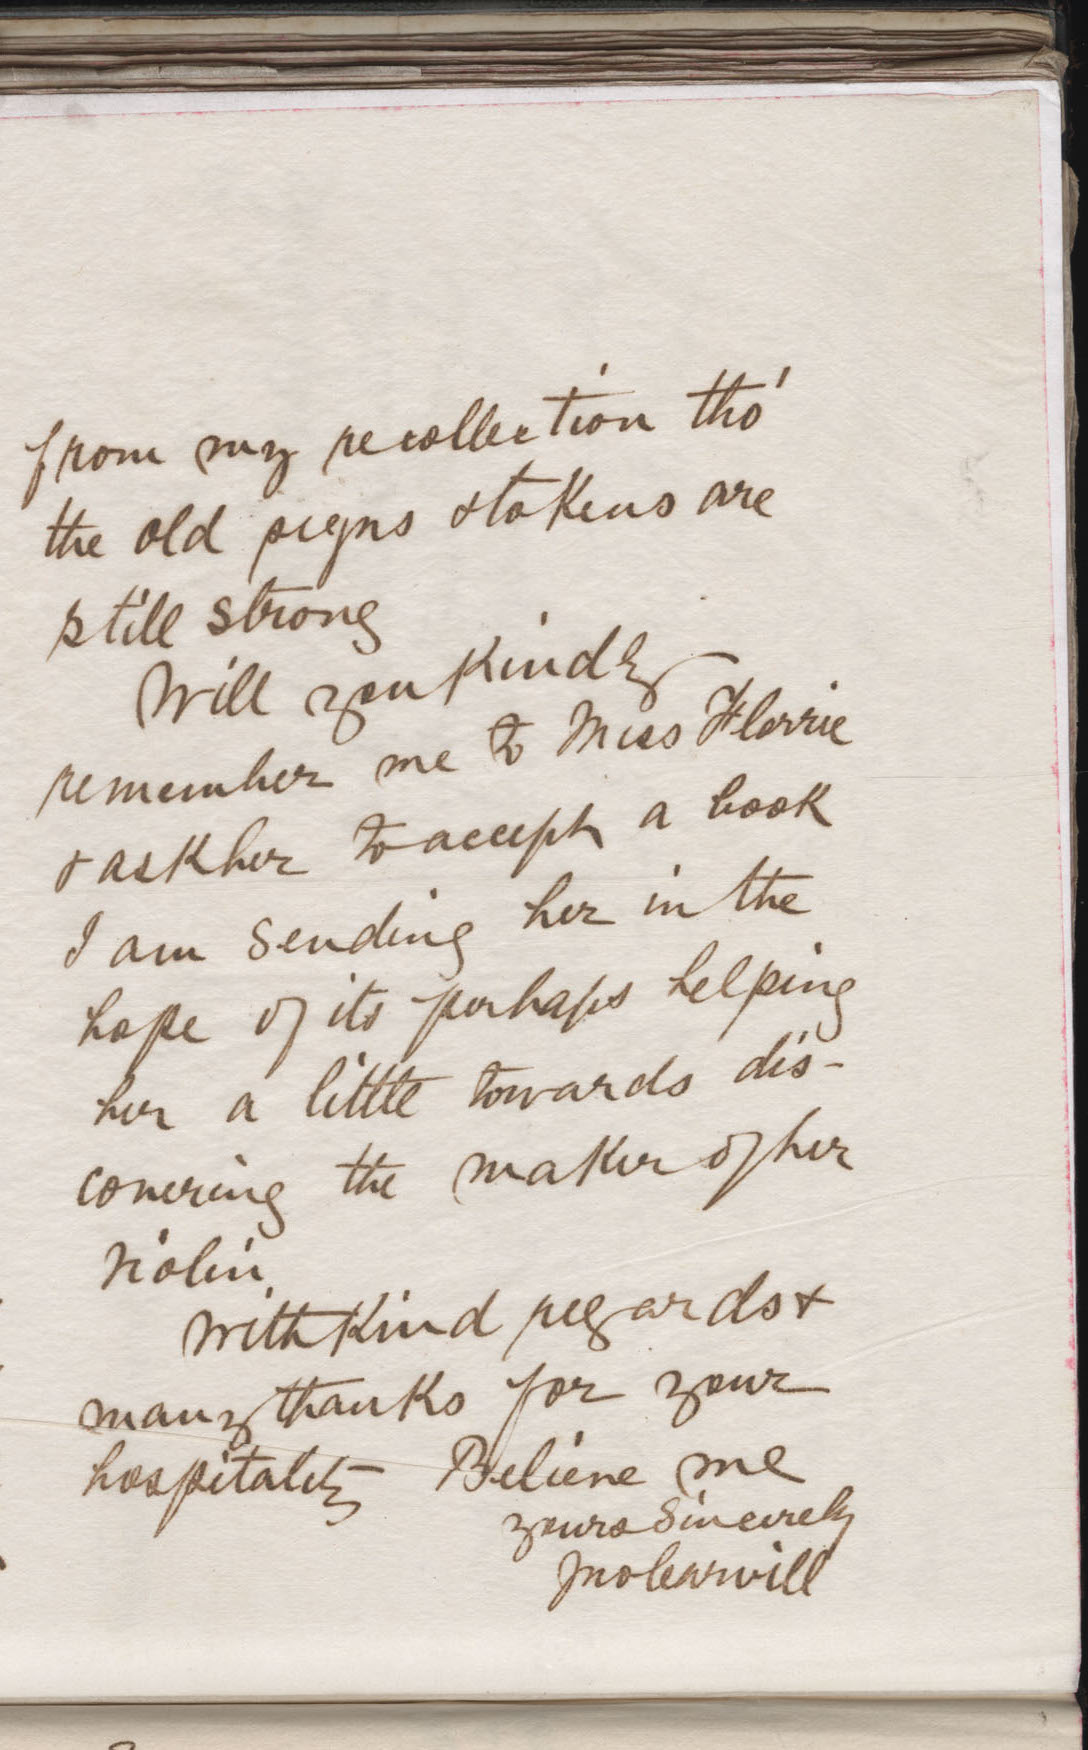 from my recollection tho'
the old signs & tokens are
still strong
Will you kindly
remember me to Miss Florrie
& ask her to accept a book
I am sending her in the
hope of its perhaps helping
her a little towards dis-
covering the maker of her
violin.
With kind regards &
many thanks for your
hospitality Believe me
yours sincerely